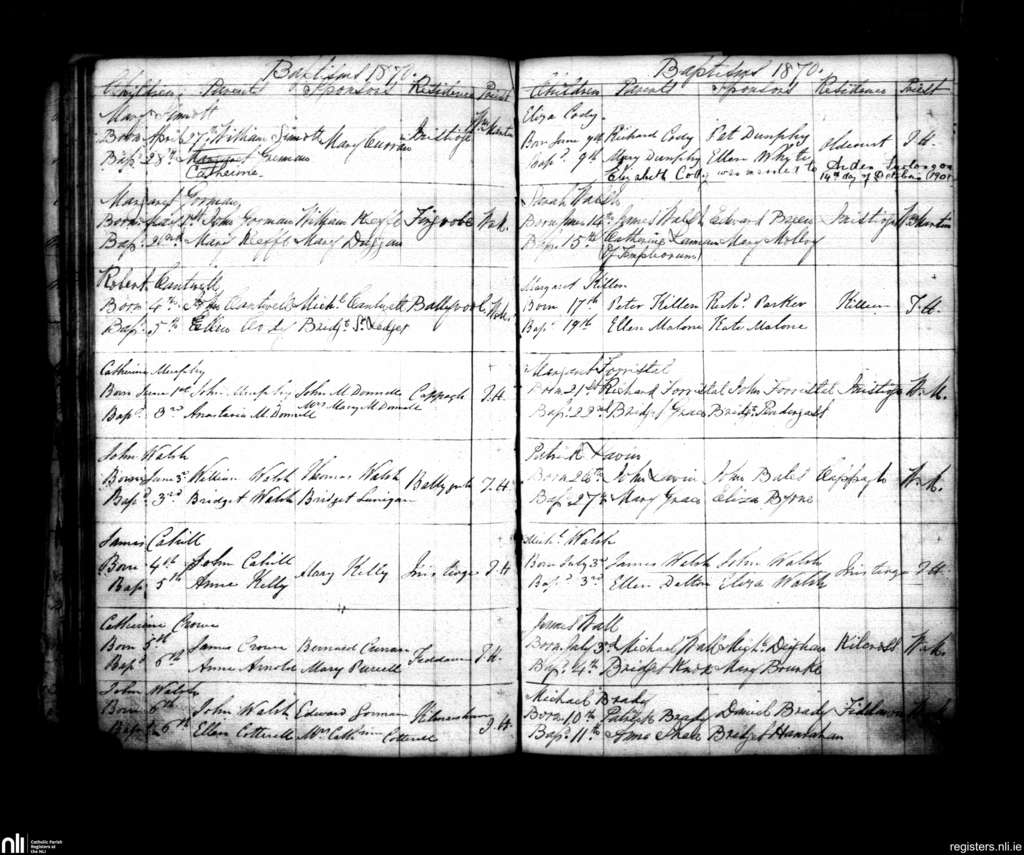 Baptisms 1870.
Children Parents Sponsors Residence Priest
Mary
Born April 27th William Mary Curran Inistioge Wm Martin
Bap. 28th Margaret
Catherine
Margaret Gorman
Born John Gorman William Keeffe W.M.
Bap. Mary Keeffe Mary Duggan
Robert Cantwell
Born 4th John Cantwell Michl. Cantwell W.M.
Bap. 5th Ellen Bridgt. St. Ledger
Catherine Murphy
Born June 1st John Murphy John McDonnell Cappagh T.H.
Bapd. 3rd Anastasia McDonnell Mrs Mary McDonnell
John Walsh
Born June 3d William Walsh Thomas Walsh T.H
Bapd. 3rd Bridget Walsh Bridget
James Cahill
Born 4th John Cahill Mary Kelly Inistioge T.H
Bap. 5th Anne Kelly
Catherine Crowe
Born 5th James Crowe Bernard Curran T.H.
Bapd. 6th Anne Arnold Mary Purcell
John Walsh
Born 6th John Walsh Edward Gorman T.H
Bapd. 6th Ellen Cotterell Mrs Catherine Cotterell
Baptisms 1870.
Children Parents Sponsors Residence Priest
Eliza Cody.
Bor June 9th Richard Cody Pat Dunphy Oldcourt T.H.
Bapd. 9th Mary Dunphy Ellen Whyte
Elizabeth Cody was married to
14th day of October 1901
Sarah Walsh
Born June 14th James Walsh Edward Breen Inistioge Wm Martin
Bap. 15th Catherine Mary Molloy
(Of Templeorum)
Margaret Killen
Born 17th Peter Killen Richd. Parker T.H.
Bapd. 19th Ellen Malone Kate Malone
Margaret Forristal
Born 21st Richard Forristal John Forristal Inistioge W.M.
Bap. Bridgt. Grace Bridgt. Pendergast
Patrick Lavin
Born 26th John Lavin John Bates Cappagh W.M.
Bap. 27th Mary Grace Eliza Byrne
Michl. Walsh
Born July 3rd James Walsh John Walsh Inistioge T.H
Bapd. 3rd Ellen Dalton Eliza Walsh
James Wall
Born July 3rd Michael Wall Michl. W.M.
Bap. 4th Bridget Mary Bourke
Michael Brady
Born 10th Patrick Brady Daniel Brady
Bap. 11th Anne Shea Bridget Hanrahan
nli
Catholic Parish
Registers at
the NLI
registers.nli.ie